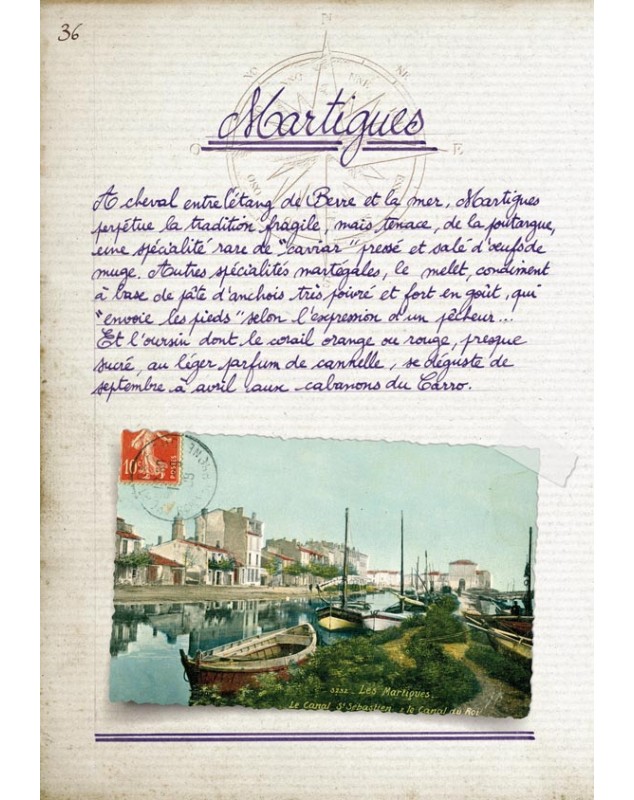 36
N
NO
NE
NNO
NNE
Martigues
O
E
OSO
ESE
A cheval entre l'étang de Berre et la mer, Martigues
perpétue la tradition fragile, mais tenace, de la poutargue,
une spécialité rare de "caviar" pressé et salé d'œufs de
muge. Autres spécialités martégales, le melet, condiment
à base de pâte d'anchois très poivré et fort en goût, qui
"envoie les pieds" selon l'expression d'un pêcheur...
Et l'oursin dont le corail orange ou rouge, presque
sucré, au léger parfum de cannelle, se déguste de
septembre à avril aux cabanons du Carro.
10
POSTES
5252 - Les Martigues,
Le Canal St Sebastien & le Canal du Roi